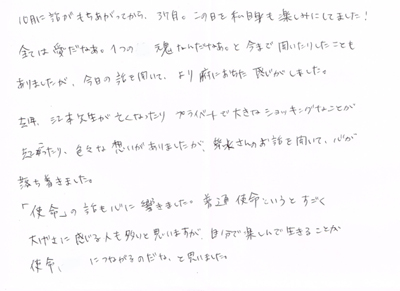 10月に話がもちあがってから、3ヶ月。この日を私自身も楽しみにしてました!
全ては愛だなあ。1つの 魂なんだなあ。と今まで聞いたりしたことも
ありましたが、今日の話を聞いて、より腑におちた感じがしました。
去年、江本先生が亡くなったり プライベートで大きなショッキングなことが
起こったり、色々な想いがありましたが、さんのお話を聞いて、心が
落ち着きました。
「使命」の話も心に響きました。普通 使命というと すごく
大げさに感じる人も多いと思いますが、自分で楽しんで生きることが
使命、 につながるのだな、と思いました。